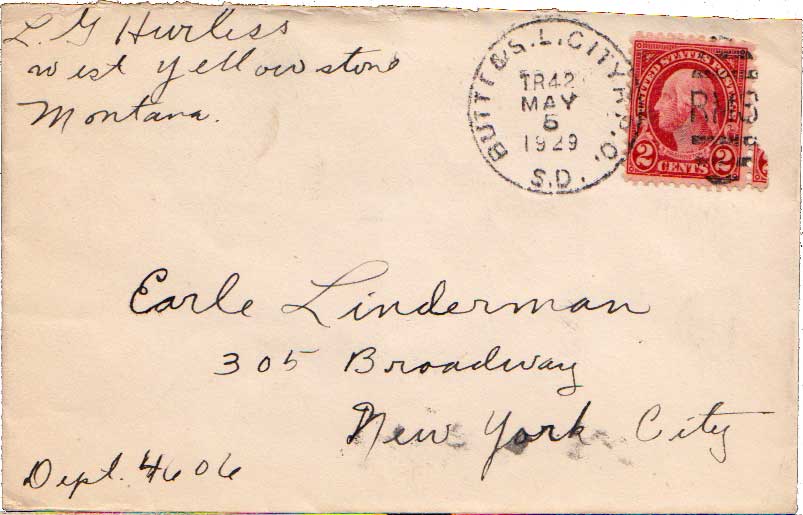 L. G Hurless
west yellowstone
Montana.
BUTTE & S. L. CITY R.P.O.
TR42
MAY
5
1929
S.D.
UNITED STATES POSTAGE
2 CENTS 2
Earle Linderman
305 Broadway
New York City
Dept. 4606